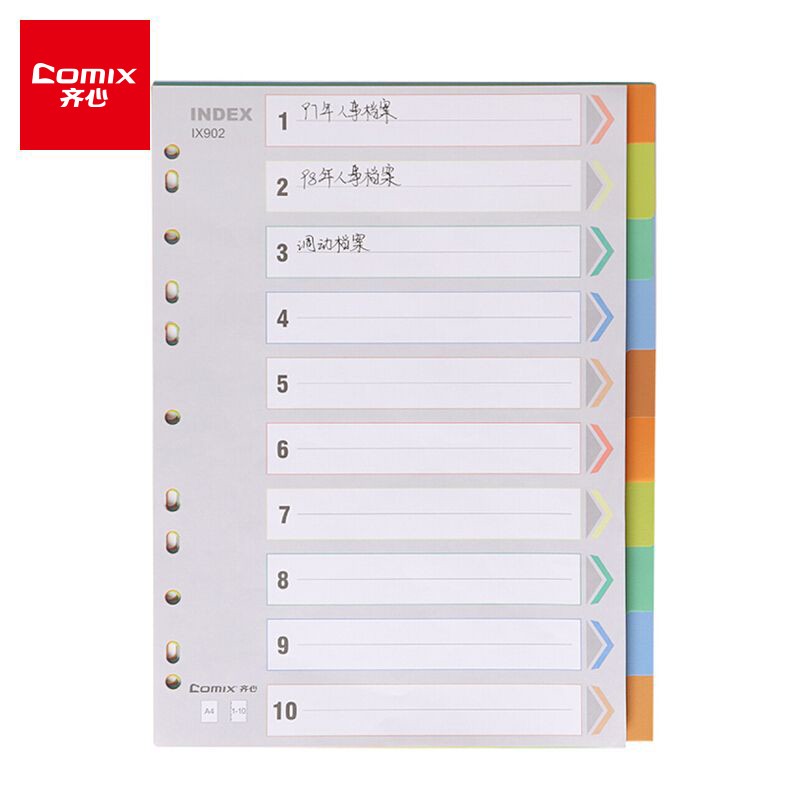 comix
齐心
INDEX
IX902
1 97年人事档案
2 98年人事档案
3 调动档案
4
5
6
7
8
9
10
comix 齐心
A4 1-10